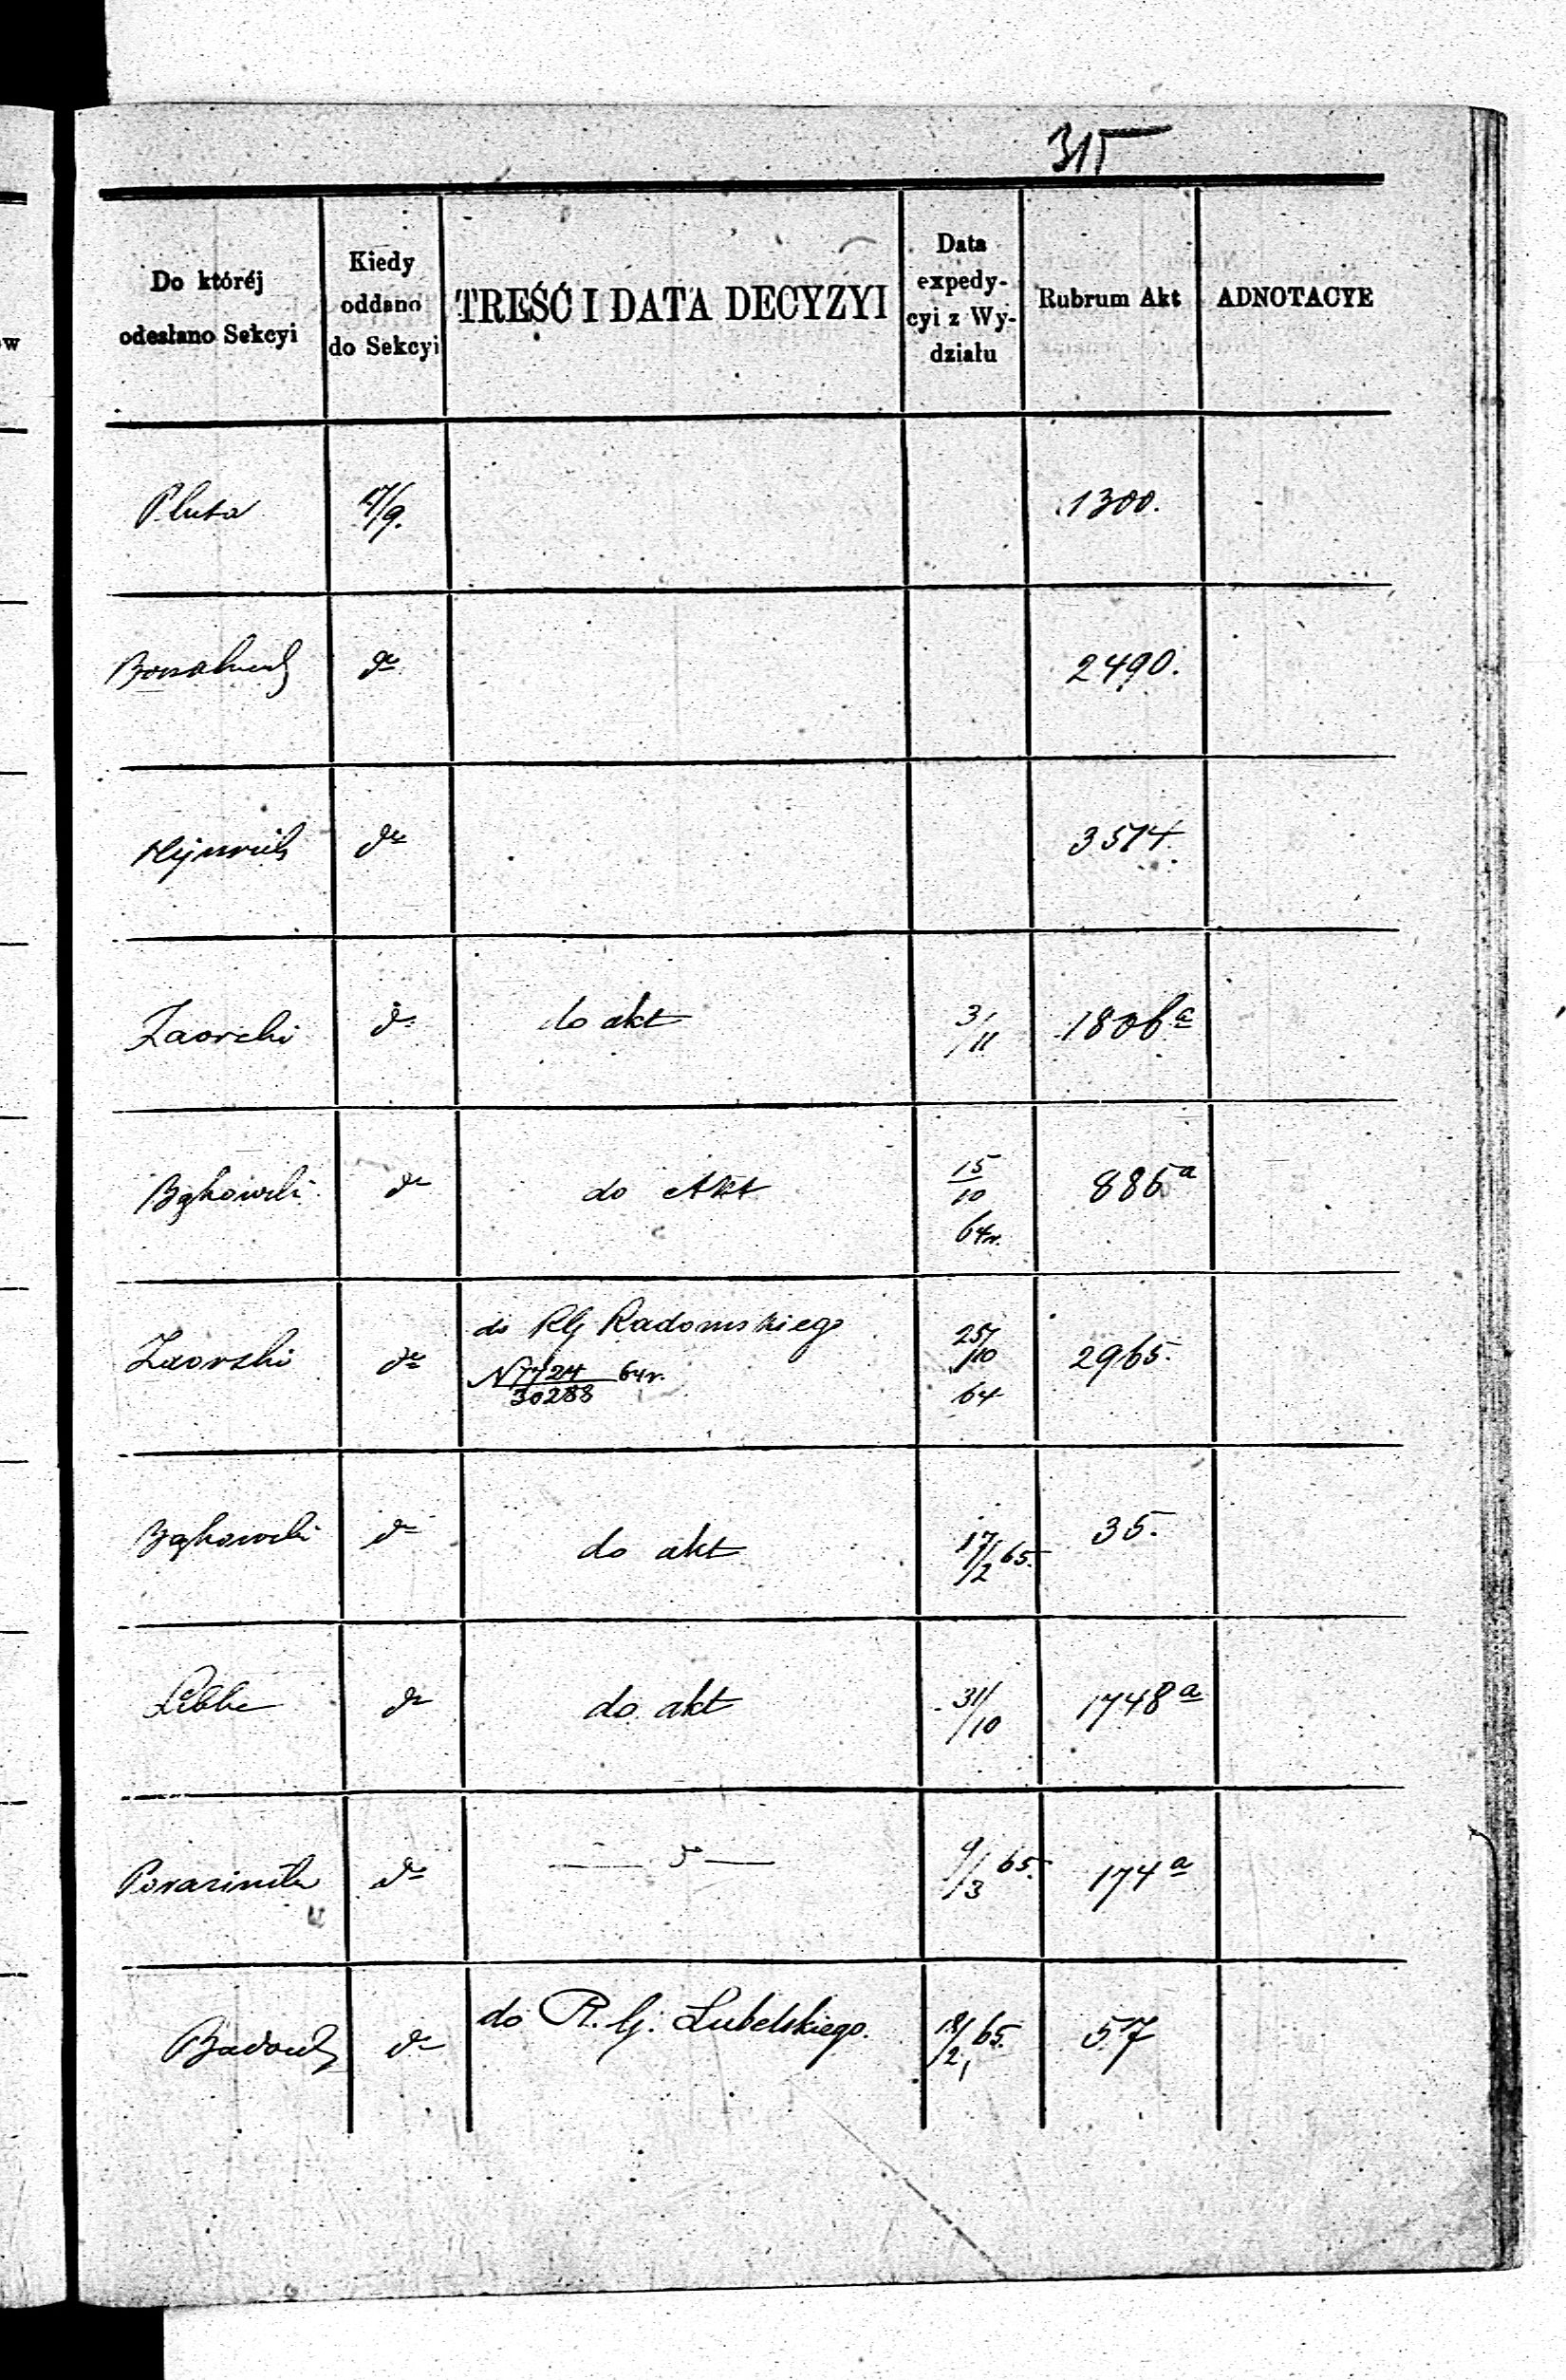 315
Do któréj odesłano Sekcyi | Kiedy oddano do Sekcyi | TREŚĆ I DATA DECYZYI | Data expedycyi z Wydziału | Rubrum Akt | ADNOTACYE
Pluta | 17/9. | 1300.
do | 2490.
do | 3514.
Zaorski | do | do akt | 3/11 | 1806 a
Bąkowski | do | do Akt | 15/10 64r. | 886 a
Zaorski | do | do RG Radomskiego N 7724/30288 64r. | 25/10 64 | 2965.
Bąkowski | do | do akt | 17/2 65. | 35.
do | do akt | 31/10 | 1748 a
do | — do — | 9/3 65. | 174 a
do | do R. G. Lubelskiego. | 18/2 65. | 57